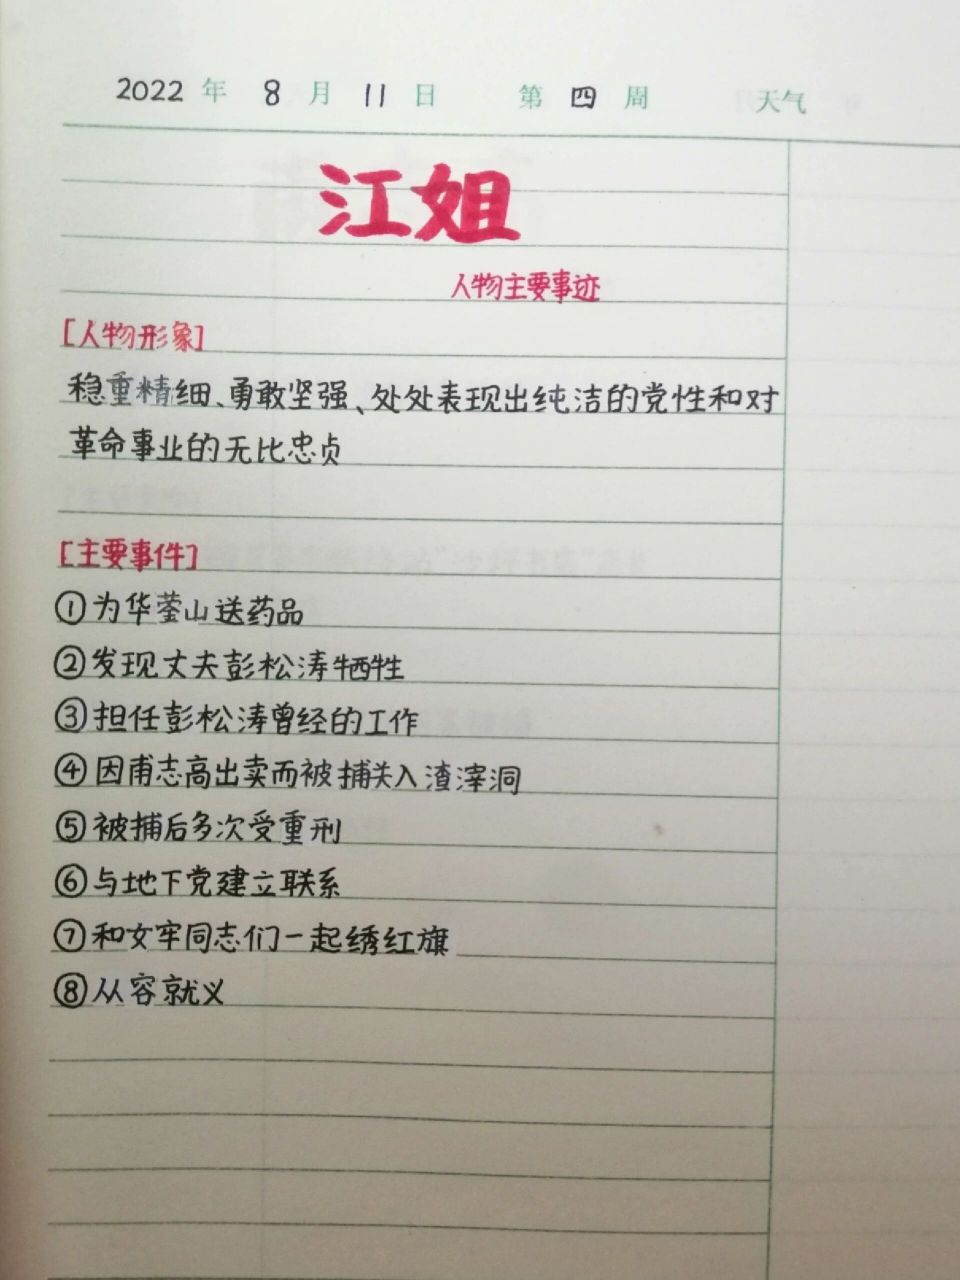 2022 年 8 月 11 日 第 四 周 天气
江姐
人物主要事迹
[人物形象]
稳重精细、勇敢坚强、处处表现出纯洁的党性和对
革命事业的无比忠贞
[主要事件]
①为华蓥山送药品
②发现丈夫彭松涛牺牲
③担任彭松涛曾经的工作
④因甫志高出卖而被捕关入渣滓洞
⑤被捕后多次受重刑
⑥与地下党建立联系
⑦和女牢同志们一起绣红旗
⑧从容就义